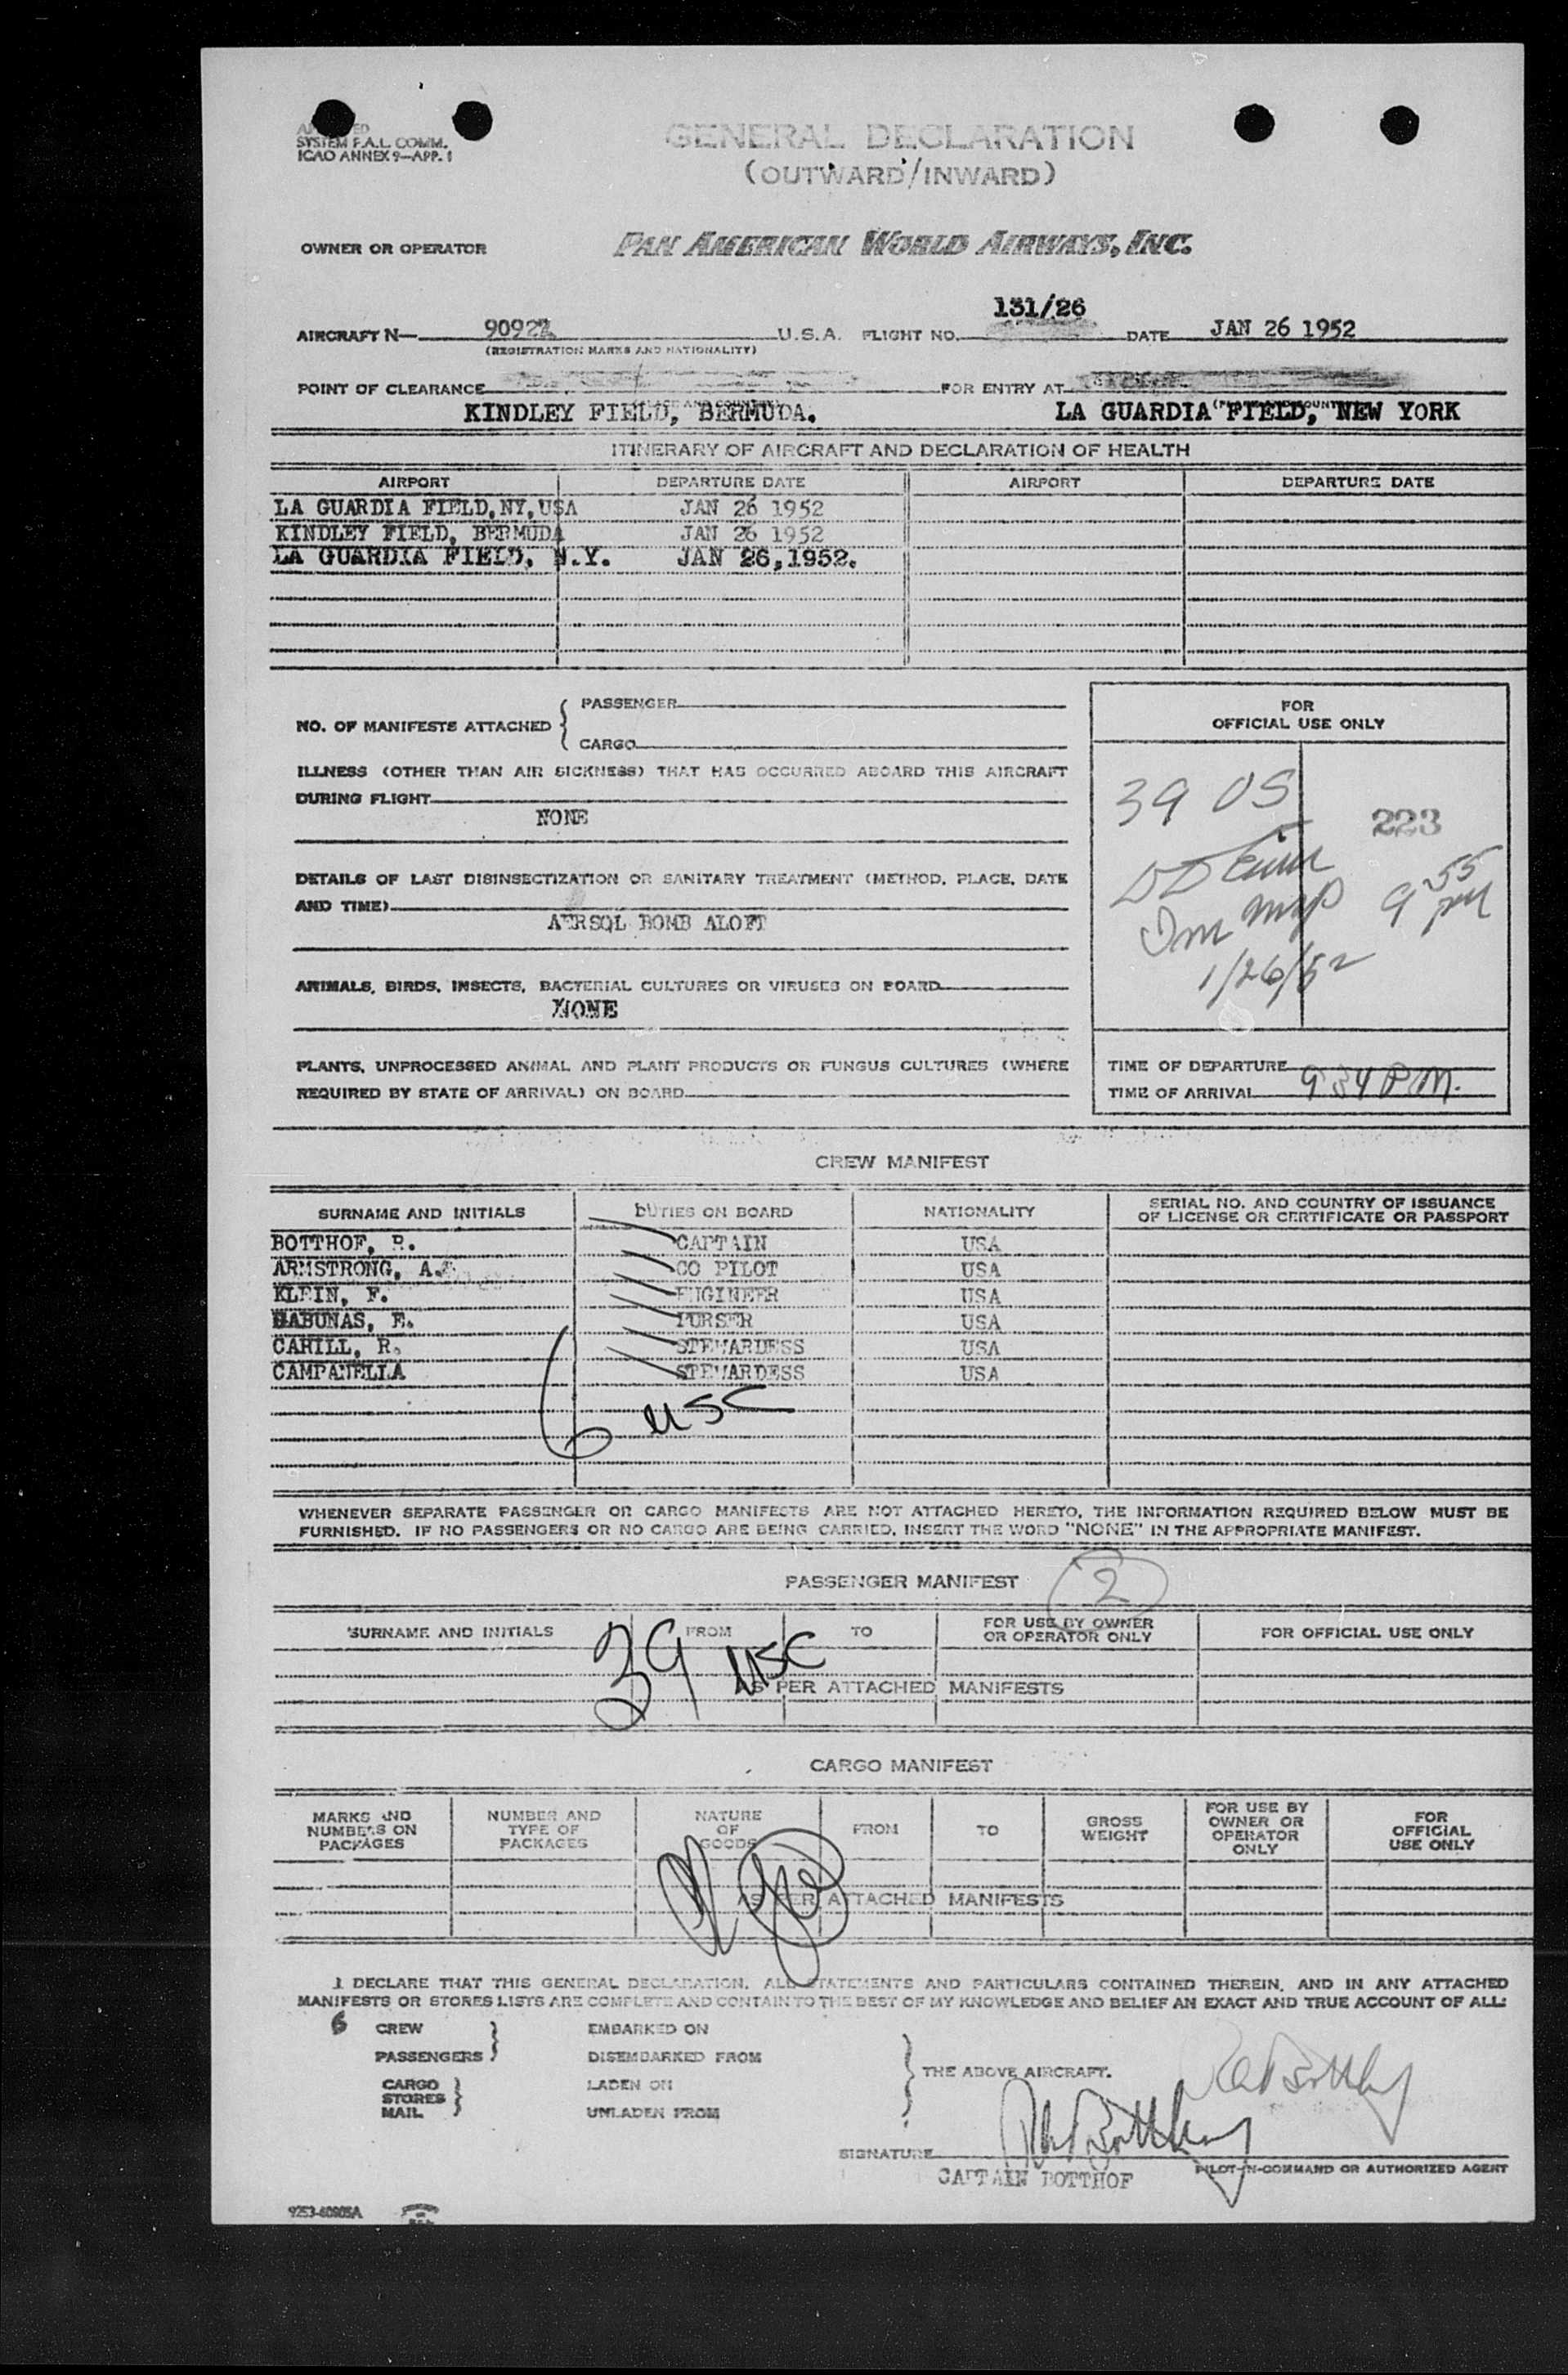 SYSTEM F.A.L. COMM.
ICAO ANNEX 9—APP. 1
GENERAL DECLARATION
(OUTWARD/INWARD)
OWNER OR OPERATOR PAN AMERICAN WORLD AIRWAYS, INC.
131/26
AIRCRAFT N— 90922 U.S.A. FLIGHT NO. DATE JAN 26 1952
(REGISTRATION MARKS AND NATIONALITY)
POINT OF CLEARANCE FOR ENTRY AT
KINDLEY FIELD, BERMUDA. LA GUARDIA FIELD, NEW YORK
ITINERARY OF AIRCRAFT AND DECLARATION OF HEALTH
AIRPORT DEPARTURE DATE AIRPORT DEPARTURE DATE
LA GUARDIA FIELD,NY,USA JAN 26 1952
KINDLEY FIELD, BERMUDA JAN 26 1952
LA GUARDIA FIELD, N.Y. JAN 26,1952.
NO. OF MANIFESTS ATTACHED { PASSENGER
CARGO
FOR
OFFICIAL USE ONLY
ILLNESS (OTHER THAN AIR SICKNESS) THAT HAS OCCURRED ABOARD THIS AIRCRAFT
DURING FLIGHT
NONE
39 US
223
DETAILS OF LAST DISINSECTIZATION OR SANITARY TREATMENT (METHOD, PLACE, DATE
AND TIME)
AERSQL BOMB ALOFT
9 55 PM
1/26/52
ANIMALS, BIRDS, INSECTS, BACTERIAL CULTURES OR VIRUSES ON BOARD
NONE
PLANTS, UNPROCESSED ANIMAL AND PLANT PRODUCTS OR FUNGUS CULTURES (WHERE
REQUIRED BY STATE OF ARRIVAL) ON BOARD
TIME OF DEPARTURE
TIME OF ARRIVAL 9 34 P.M.
CREW MANIFEST
SURNAME AND INITIALS DUTIES ON BOARD NATIONALITY SERIAL NO. AND COUNTRY OF ISSUANCE
OF LICENSE OR CERTIFICATE OR PASSPORT
BOTTHOF, R. CAPTAIN USA
ARMSTRONG, A. CO PILOT USA
KLEIN, F. ENGINEER USA
BABUNAS, E. PURSER USA
CAHILL, R. STEWARDESS USA
CAMPANELLA STEWARDESS USA
6 USC
WHENEVER SEPARATE PASSENGER OR CARGO MANIFESTS ARE NOT ATTACHED HERETO, THE INFORMATION REQUIRED BELOW MUST BE
FURNISHED. IF NO PASSENGERS OR NO CARGO ARE BEING CARRIED, INSERT THE WORD "NONE" IN THE APPROPRIATE MANIFEST.
PASSENGER MANIFEST 2
SURNAME AND INITIALS FROM TO FOR USE BY OWNER
OR OPERATOR ONLY FOR OFFICIAL USE ONLY
39 USC
AS PER ATTACHED MANIFESTS
CARGO MANIFEST
MARKS AND
NUMBERS ON
PACKAGES
NUMBER AND
TYPE OF
PACKAGES
NATURE
OF
GOODS
FROM
TO
GROSS
WEIGHT
FOR USE BY
OWNER OR
OPERATOR
ONLY
FOR
OFFICIAL
USE ONLY
AS PER ATTACHED MANIFESTS
I DECLARE THAT THIS GENERAL DECLARATION, ALL STATEMENTS AND PARTICULARS CONTAINED THEREIN, AND IN ANY ATTACHED
MANIFESTS OR STORES LISTS ARE COMPLETE AND CONTAIN TO THE BEST OF MY KNOWLEDGE AND BELIEF AN EXACT AND TRUE ACCOUNT OF ALL:
6 CREW EMBARKED ON
PASSENGERS DISEMBARKED FROM
THE ABOVE AIRCRAFT.
CARGO LADEN ON
STORES
MAIL UNLADEN FROM
SIGNATURE
CAPTAIN BOTTHOF PILOT-IN-COMMAND OR AUTHORIZED AGENT
9253-40905A